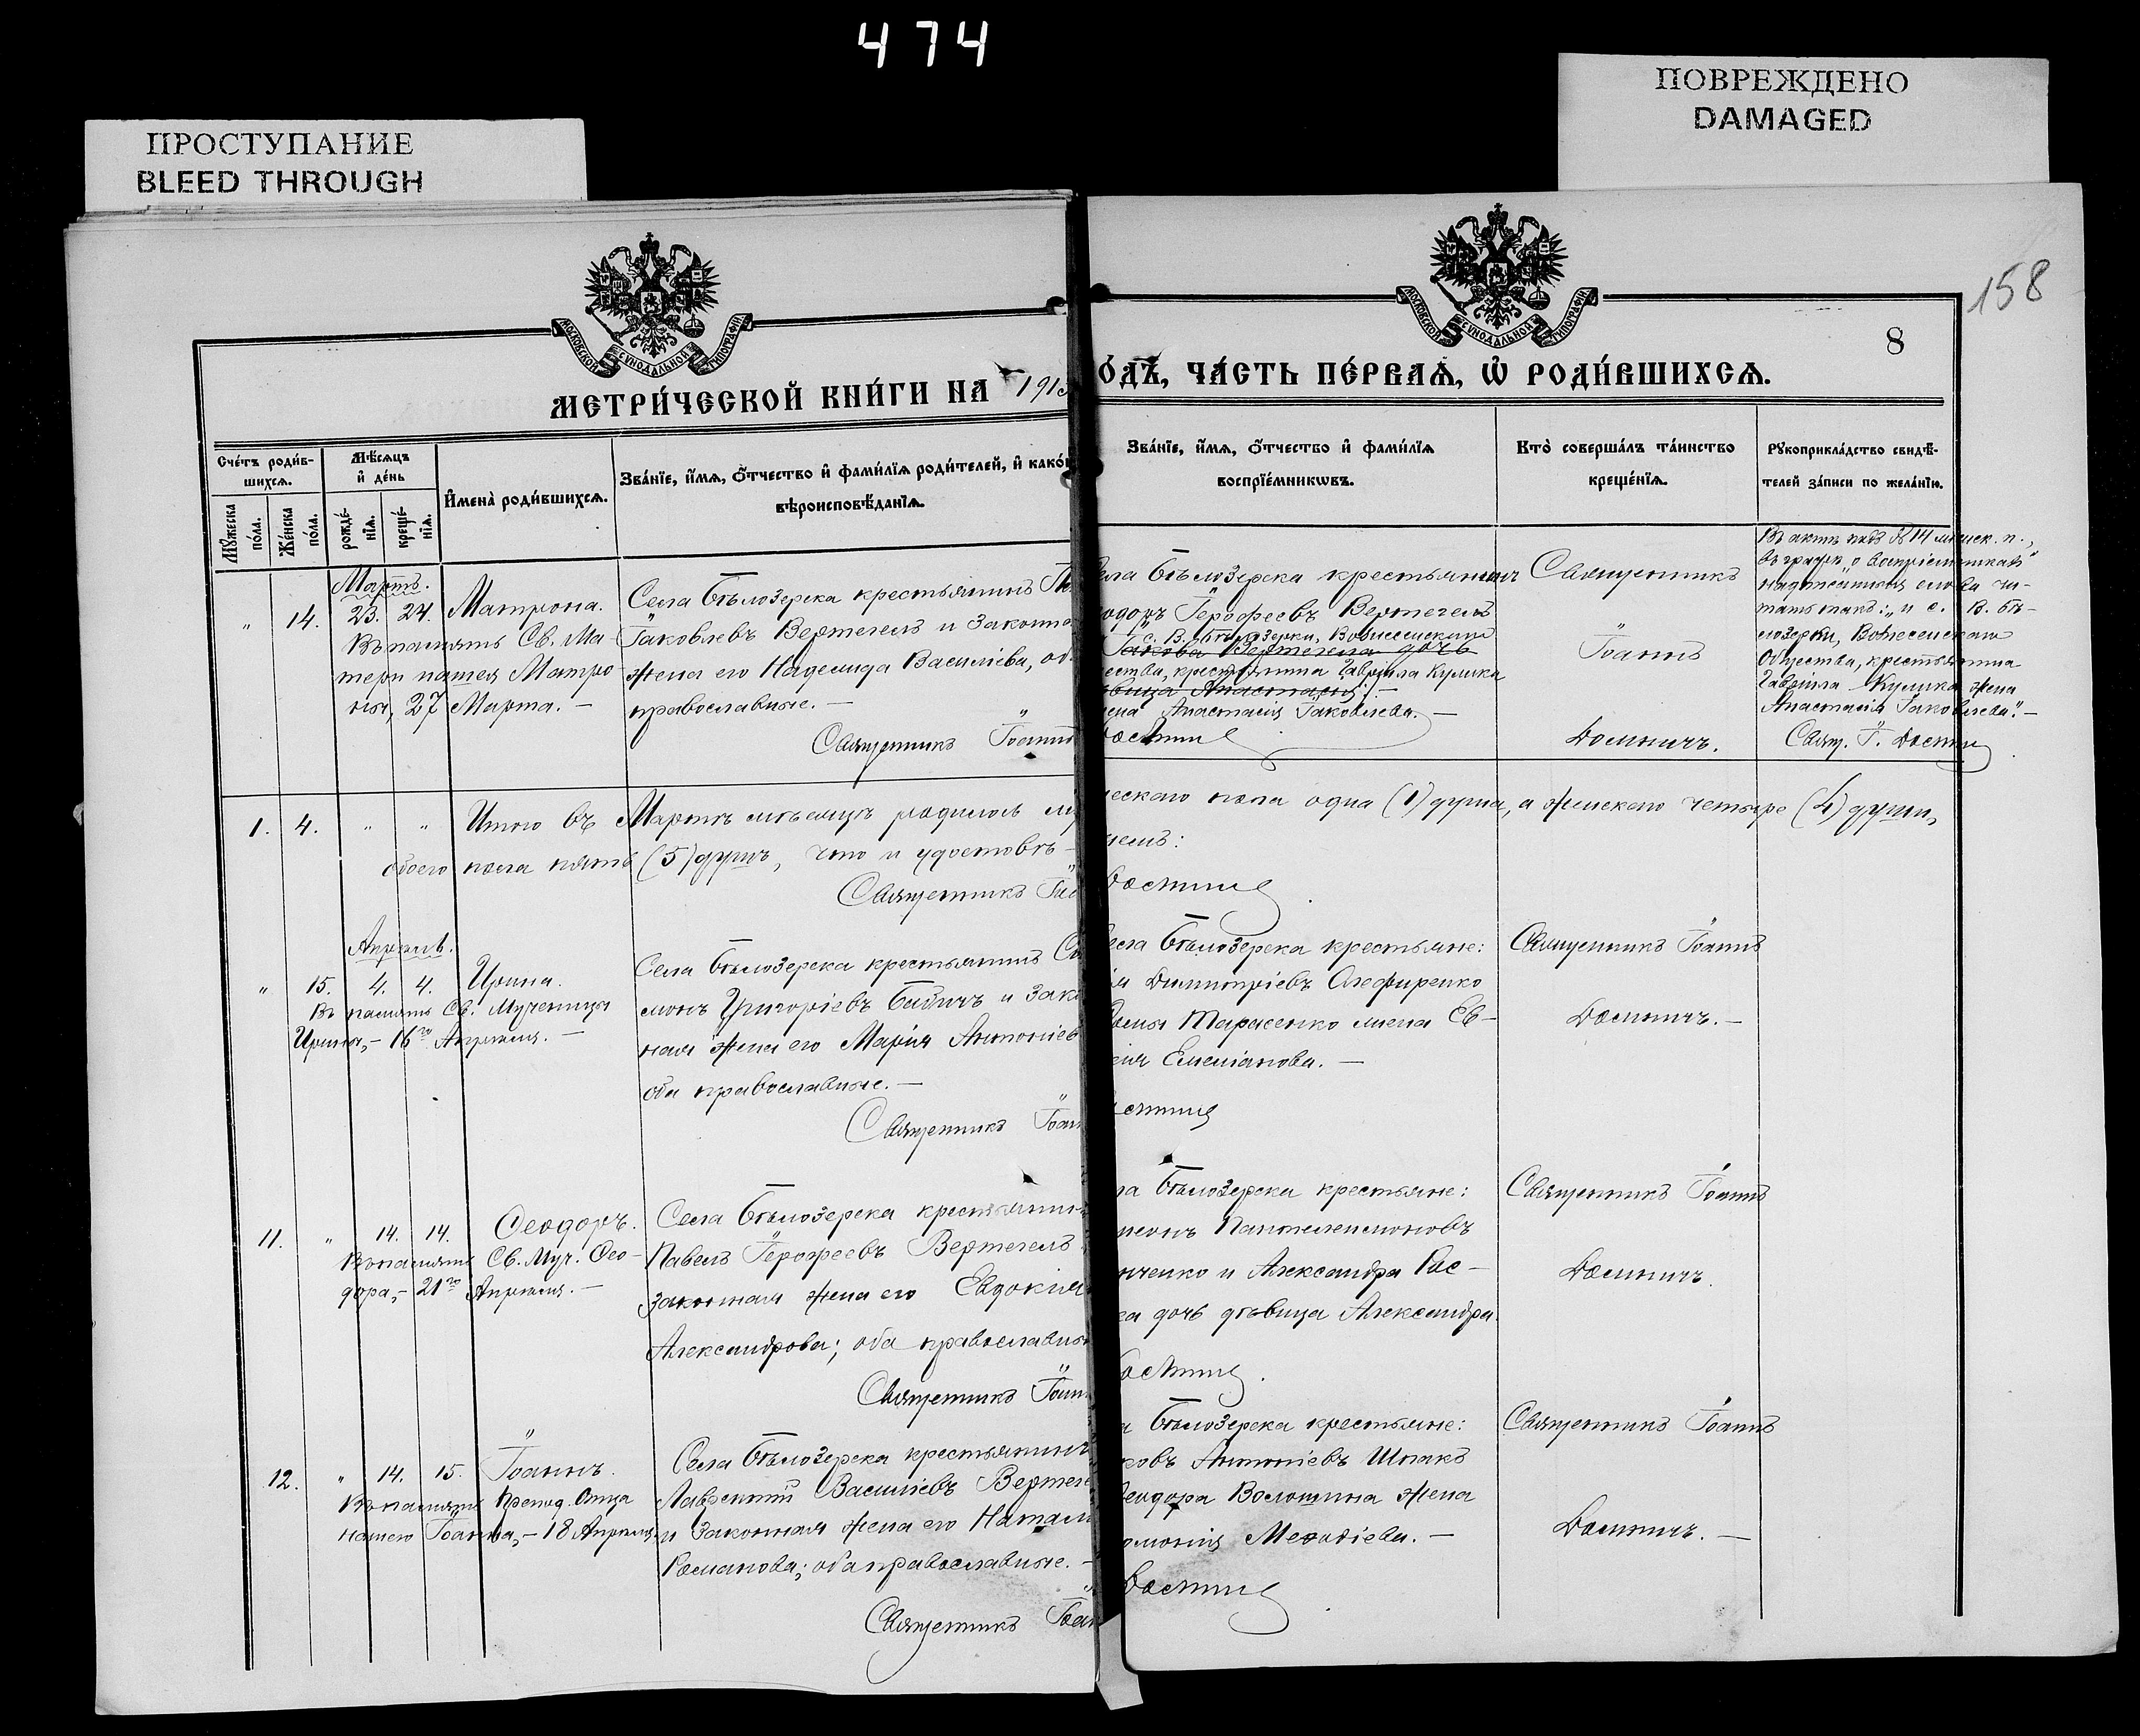 474
ПРОСТУПАНИЕ
BLEED THROUGH
ПОВРЕЖДЕНО
DAMAGED
158
8
МОСКОВСКОЙ СѴНОДАЛЬНОЙ ТИПОГРАФІИ
МОСКОВСКОЙ СѴНОДАЛЬНОЙ ТИПОГРАФІИ
МЕТРИ́ЧЕСКОЙ КНИ́ГИ НА 1913
О́ДЪ, ЧА́СТЬ ПЕ́РВАѦ, Ѡ РОДИ́ВШИХСѦ.
Сче́тъ роди́в-
шихсѧ.
Мꙋ́жеска по́ла.
Же́нска по́ла.
Мѣ́сѧцъ
и҆ де́нь
рожде́-
нїѧ.
креще́-
нїѧ.
И҆мена̀ роди́вшихсѧ.
Зва́нїе, и҆́мѧ, ѻ҆́тчество и҆ фами́лїѧ роди́телей, и҆ како́
вѣроисповѣ́данїѧ.
Зва́нїе, и҆́мѧ, ѻ҆́тчество и҆ фами́лїѧ
воспрїе́мникѡвъ.
Кто̀ соверша́лъ та́инство
креще́нїѧ.
Рꙋкоприкла́дство свидѣ́-
телей за́писи по жела́нїю.
Мартъ.
" 14. 23. 24. Матрона.
Въ память Св. Ма-
тери нашея Матро-
ны, 27 Марта. —
Села Бѣлозерка крестьянинъ
Іаковлевъ Вертегелъ и законна
жена его Надежда Василіева, об
православные. —
Священникъ Іоаннъ
ела Бѣлозерка крестьянин
одоръ Іерофеевъ Вертегелъ
с. В. Бѣлозерки, Вознесенскаго
Іакова Вертегела дочь
ества, крестьянина Гавріила Кулика
вица Анастасія. —
ена Анастасія Іаковлева. —
Домнич
Священникъ
Іоаннъ
Домничъ.
Въ актѣ подъ № 14 женск. п.,
въ графѣ „о воспріемникахъ"
надписанныя слова чи-
тать такъ: „и с. В. Бѣ-
лозерки, Вознесенскаго
Общества, крестьянина
Гавріила Кулика жена
Анастасія Іаковлева". —
Свящ. І. Домнич
1. 4. " " Итого въ Мартѣ мѣсяцѣ родилось му
ческаго пола одна (1) душа, а женскаго четыре (4) души,
обоего пола пять (5) душъ, что и удостовѣ-
ряемъ:
Священникъ Іоа
Домнич
Апрѣль.
" 15. 4. 4. Ирина.
Въ память Св. Мученицы
Ирины, — 16го Апрѣля. —
Села Бѣлозерка крестьянинъ Си
монъ Григоріевъ Бабичъ и зако
ная жена его Марія Антоніев
оба православные. —
Священникъ Іоан
ела Бѣлозерка крестьяне:
ія Димитріевъ Олефиренко
Тарасенко жена Ев-
Емеліанова. —
омнич
Священникъ Іоаннъ
Домничъ. —
11. " 14. 14. Ѳеодоръ.
Въ память Св. Муч. Ѳео-
дора, — 21го Апрѣля. —
Села Бѣлозерка крестьянинъ
Павелъ Іерофеевъ Вертегелъ
законная жена его Евдокія
Александрова; оба православны
Священникъ Іоан
ла Бѣлозерка крестьяне:
меонъ Пантелеимоновъ
нченко и Александра Рос-
ка дочь дѣвица Александра.
омнич
Священникъ Іоаннъ
Домничъ.
12. " 14. 15. Іоаннъ.
Въ память Препод. Отца
нашего Іоанна, — 18 Апрѣля.
Села Бѣлозерка крестьянинъ
Лаврентій Василіевъ Вертеге
и законная жена его Натал
Романова; оба православные. —
Священникъ Іоан
а Бѣлозерка крестьяне:
ковъ Антоніевъ Шпакъ
Ѳеодора Волошина жена
омонія Меѳодіева. —
Домнич
Священникъ Іоаннъ
Домничъ. —